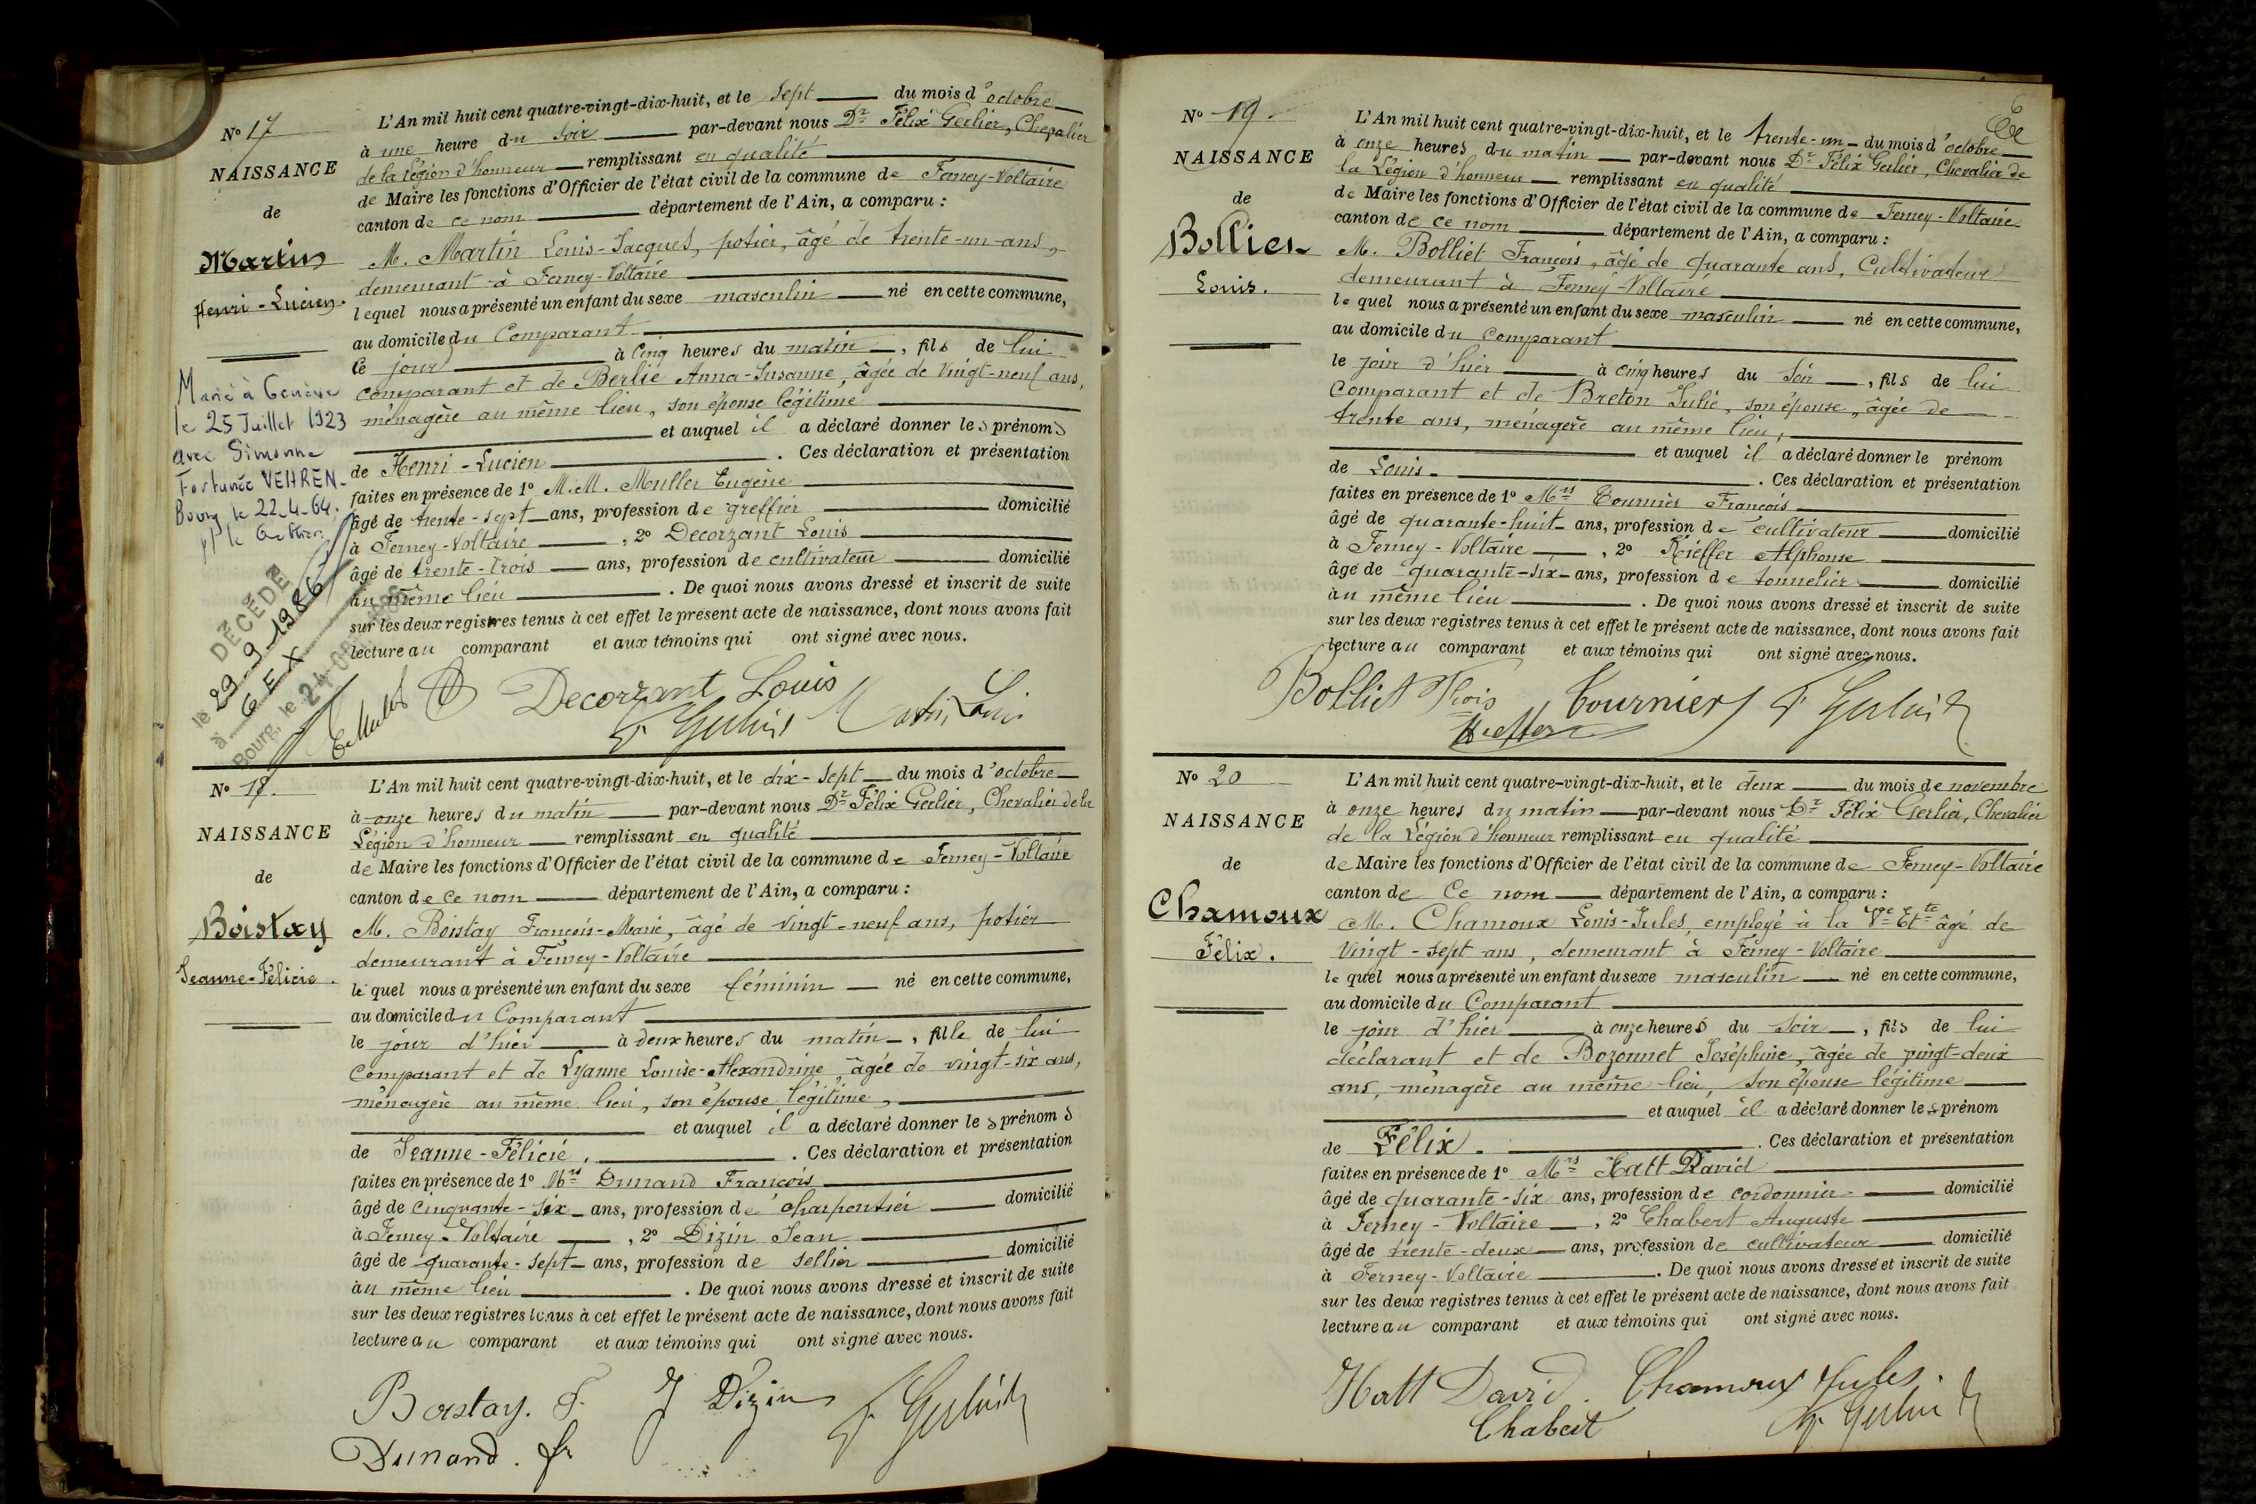 N° 17
NAISSANCE
de
Martin
Henri-Lucien.
Marié à Genève
le 25 Juillet 1923
avec Simonne
Fortunée VEHREN.
Bourg le 22-4-64.
DÉCÉDÉ
le 29-9-1986
à GEX
Bourg, le 24 OCT. 1986
L'An mil huit cent quatre-vingt-dix-huit, et le sept du mois d'octobre
à une heure du soir par-devant nous Dr Félix Gerlier, Chevalier
de la Légion d'honneur remplissant en qualité
de Maire les fonctions d'Officier de l'état civil de la commune de Ferney-Voltaire
canton de ce nom département de l'Ain, a comparu :
M. Martin Louis-Jacques, potier, âgé de trente-un-ans,
demeurant à Ferney-Voltaire
lequel nous a présenté un enfant du sexe masculin né en cette commune,
au domicile du Comparant
ce jour à cinq heures du matin, fils de lui
comparant et de Berlie Anna-Susanne, âgée de vingt-neuf ans,
ménagère au même lieu, son épouse légitime
et auquel il a déclaré donner les prénoms
de Henri-Lucien. Ces déclaration et présentation
faites en présence de 1° M.M. Muller Eugène
âgé de trente-sept ans, profession de greffier domicilié
à Ferney-Voltaire, 2° Decorzant Louis
âgé de trente-trois ans, profession de cultivateur domicilié
au même lieu. De quoi nous avons dressé et inscrit de suite
sur les deux registres tenus à cet effet le présent acte de naissance, dont nous avons fait
lecture au comparant et aux témoins qui ont signé avec nous.
E. Muller Decorzant Louis
F. Gerlier Martin Louis
N° 18.
NAISSANCE
de
Boistay
Jeanne-Félicie.
L'An mil huit cent quatre-vingt-dix-huit, et le dix-sept du mois d'octobre
à onze heures du matin par-devant nous Dr Félix Gerlier, Chevalier de la
Légion d'honneur remplissant en qualité
de Maire les fonctions d'Officier de l'état civil de la commune de Ferney-Voltaire
canton de ce nom département de l'Ain, a comparu :
M. Boistay François-Marie, âgé de vingt-neuf ans, potier
demeurant à Ferney-Voltaire
lequel nous a présenté un enfant du sexe féminin né en cette commune,
au domicile du Comparant
le jour d'hier à deux heures du matin, fille de lui
comparant et de Lyanne Louise-Alexandrine âgée de vingt-six ans,
ménagère au même lieu, son épouse légitime,
et auquel il a déclaré donner les prénoms
de Jeanne-Félicie. Ces déclaration et présentation
faites en présence de 1° Mrs Dunand François
âgé de cinquante-six ans, profession de charpentier domicilié
à Ferney-Voltaire, 2° Dizin Jean
âgé de quarante-sept ans, profession de sellier domicilié
au même lieu. De quoi nous avons dressé et inscrit de suite
sur les deux registres tenus à cet effet le présent acte de naissance, dont nous avons fait
lecture au comparant et aux témoins qui ont signé avec nous.
Boistay. F. J Dizin F. Gerlier
Dunand. fr
6
N° 19
NAISSANCE
de
Bollier
Louis.
L'An mil huit cent quatre-vingt-dix-huit, et le trente-un du mois d'octobre
à onze heures du matin par-devant nous Dr Félix Gerlier, Chevalier de
la Légion d'honneur remplissant en qualité
de Maire les fonctions d'Officier de l'état civil de la commune de Ferney-Voltaire
canton de ce nom département de l'Ain, a comparu :
M. Bolliet François, âgé de quarante ans, Cultivateur
demeurant à Ferney-Voltaire
lequel nous a présenté un enfant du sexe masculin né en cette commune,
au domicile du comparant
le jour d'hier à cinq heures du soir, fils de lui
comparant et de Breton Julie, son épouse, âgée de
trente ans, ménagère au même lieu,
et auquel il a déclaré donner le prénom
de Louis. Ces déclaration et présentation
faites en présence de 1° Mrs Tournier François
âgé de quarante-huit ans, profession de cultivateur domicilié
à Ferney-Voltaire, 2° Kieffer Alphonse
âgé de quarante-six ans, profession de tonnelier domicilié
au même lieu. De quoi nous avons dressé et inscrit de suite
sur les deux registres tenus à cet effet le présent acte de naissance, dont nous avons fait
lecture au comparant et aux témoins qui ont signé avec nous.
Bolliet Fçois Tournier F. Gerlier
Kieffer
N° 20
NAISSANCE
de
Chamoux
Félix.
L'An mil huit cent quatre-vingt-dix-huit, et le deux du mois de novembre
à onze heures du matin par-devant nous Dr Félix Gerlier, Chevalier
de la Légion d'honneur remplissant en qualité
de Maire les fonctions d'Officier de l'état civil de la commune de Ferney-Voltaire
canton de Ce nom département de l'Ain, a comparu :
M. Chamoux Louis-Jules, employé à la Vie Ete âgé de
vingt-sept ans, demeurant à Ferney-Voltaire
lequel nous a présenté un enfant du sexe masculin né en cette commune,
au domicile du Comparant
le jour d'hier à onze heures du soir, fils de lui
déclarant et de Bozonnet Joséphine, âgée de vingt-deux
ans, ménagère au même lieu, son épouse légitime
et auquel il a déclaré donner les prénom
de Félix. Ces déclaration et présentation
faites en présence de 1° Mrs Hatt David
âgé de quarante-six ans, profession de cordonnier domicilié
à Ferney-Voltaire, 2° Chabert Auguste
âgé de trente-deux ans, profession de cultivateur domicilié
à Ferney-Voltaire. De quoi nous avons dressé et inscrit de suite
sur les deux registres tenus à cet effet le présent acte de naissance, dont nous avons fait
lecture au comparant et aux témoins qui ont signé avec nous.
Hatt David. Chamoux Jules.
Chabert F. Gerlier